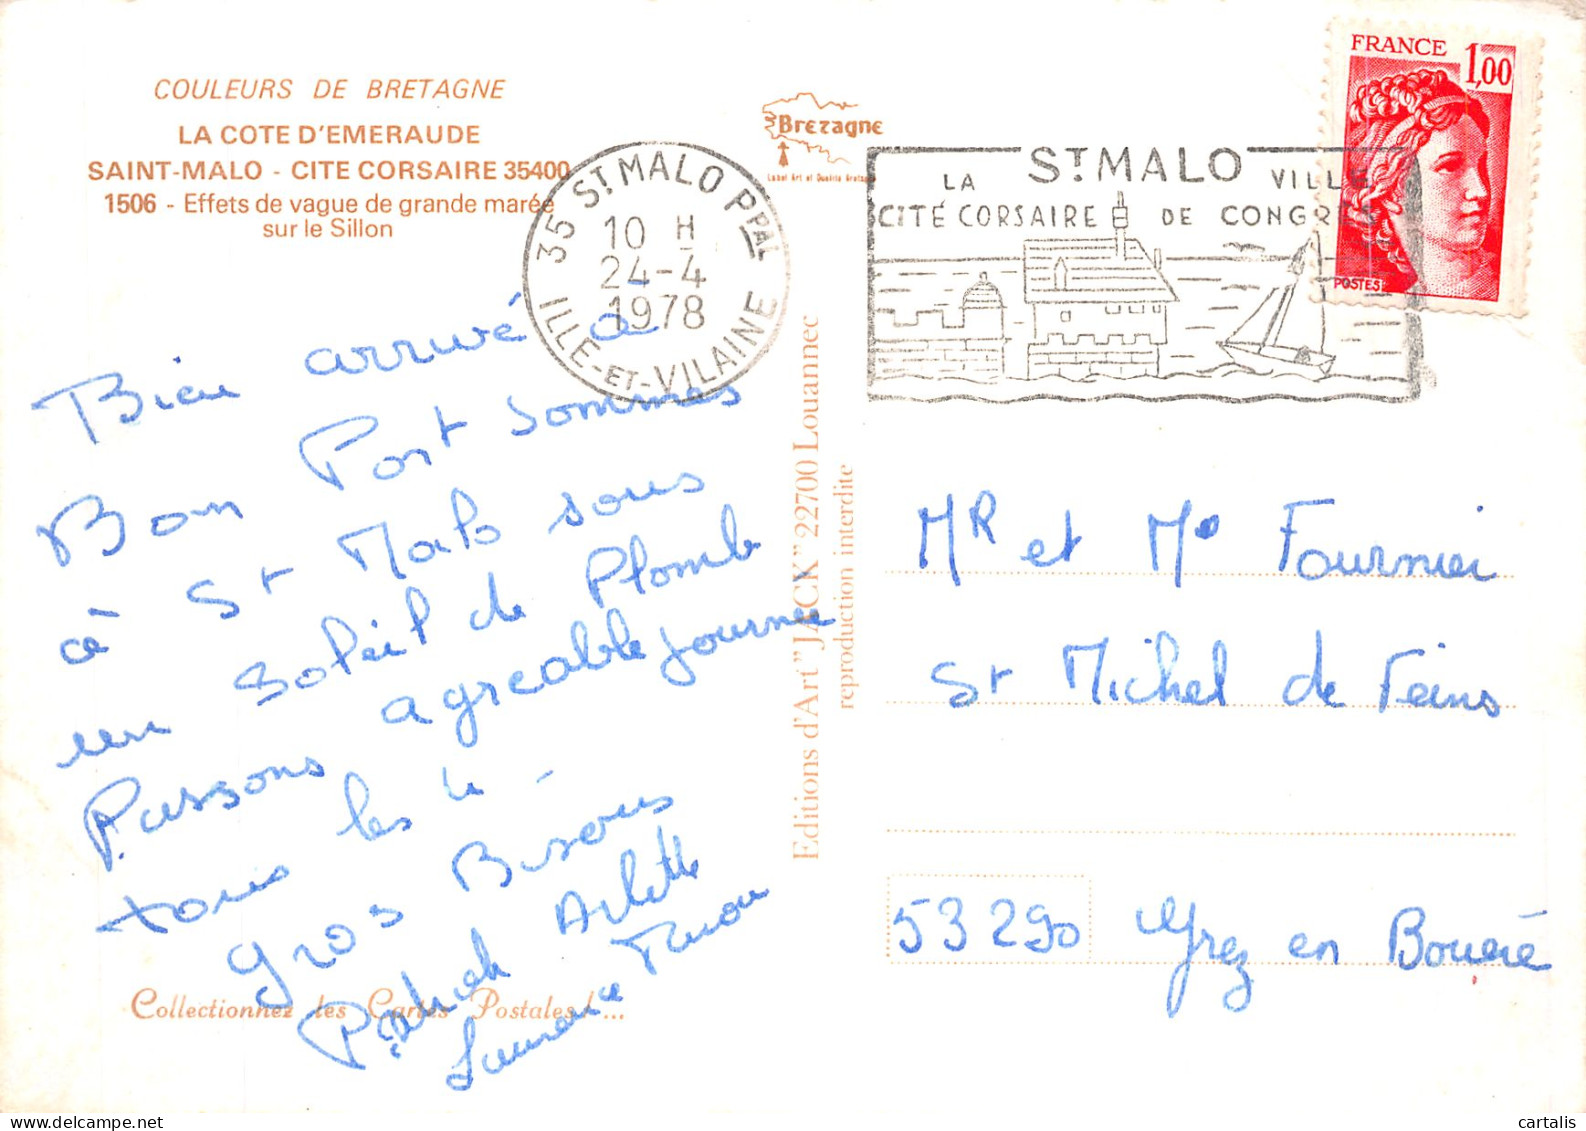 COULEURS DE BRETAGNE
LA COTE D'EMERAUDE
SAINT-MALO - CITE CORSAIRE 35400
1506 - Effets de vague de grande marée
sur le Sillon
Bien arrivé a
Bon Port sommes
à St Malo sous
un soleil de Plomb
Passons agreable journee
tous les 4 -
gros Bisous
Patrick Arlette
Laurence
Collectionnez les Cartes Postales!...
Editions d'Art "JACK" 22700 Louannec
reproduction interdite
Bretagne
Label Art et Qualité Bretagne
35 ST MALO PPAL
10 H
24-4
1978
ILLE-ET-VILAINE
ST MALO
LA VILLE
CITÉ CORSAIRE DE CONGRES
FRANCE 1,00
POSTES
Mr et Me Fournier
St Michel de Feins
53290 Grez en Boueré
cartalis